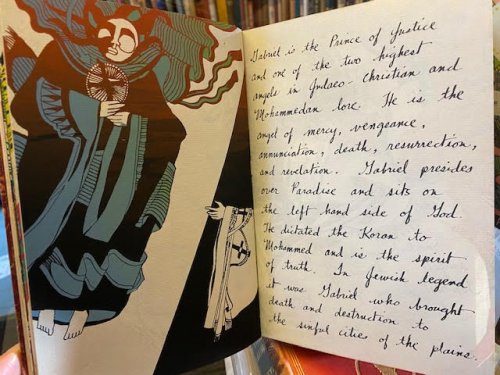 Gabriel is the Prince of Justice
and one of the two highest
angels in Judaeo-Christian and
Mohammedan lore. He is the
angel of mercy, vengeance,
annunciation, death, resurrection,
and revelation. Gabriel presides
over Paradise and sits on
the left hand side of God.
He dictated the Koran to
Mohammed and is the spirit
of truth. In Jewish legend
it was Gabriel who brought
death and destruction to
the sinful cities of the plains.